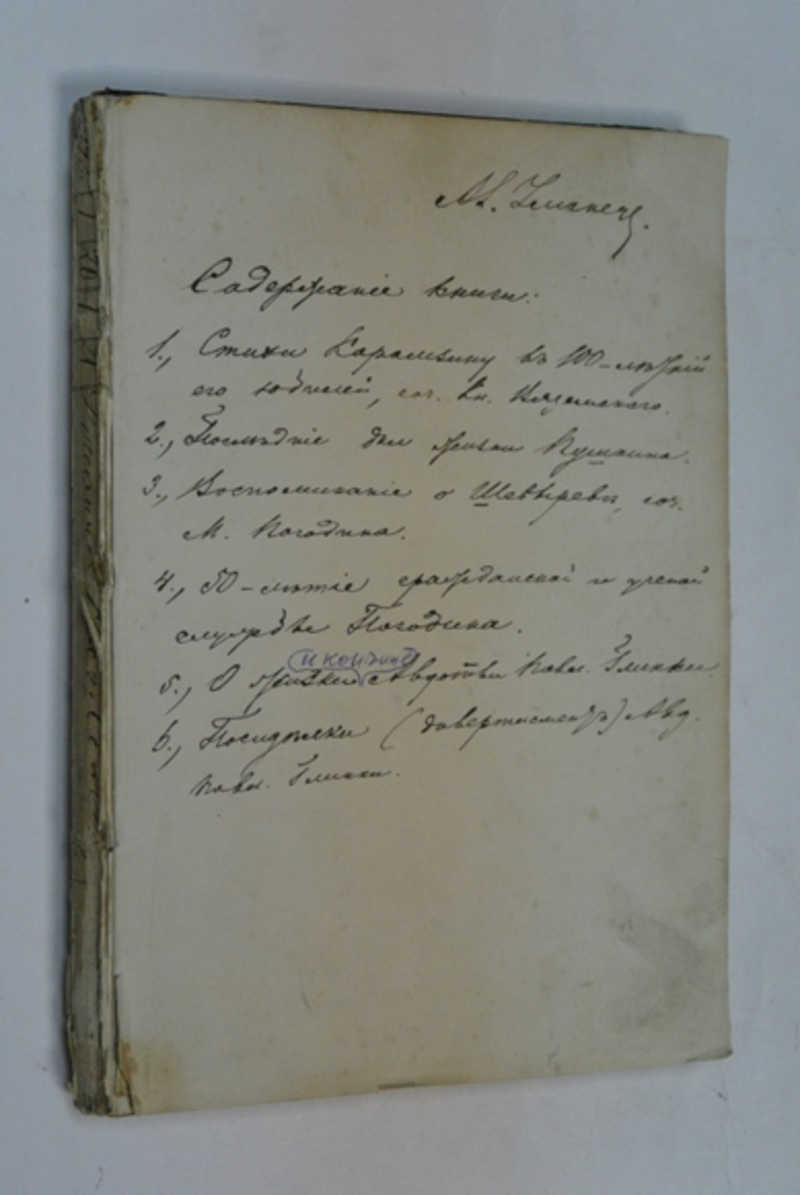 М.
Содержаніе книги:
1., Стихи Карамзину въ 100-лѣтній
его юбилей, соч. кн. Вяземскаго.
2., Послѣдніе дни жизни Пушкина.
3., Воспоминаніе о Шевыревѣ, соч.
М. Погодина.
4., 50-лѣтіе гражданской и ученой
службы Погодина.
и кончинѣ
5., О жизни Авдотьи Павл. Глинки.
6., Посидѣлки (дивертисментъ) Авд.
Павл. Глинки.